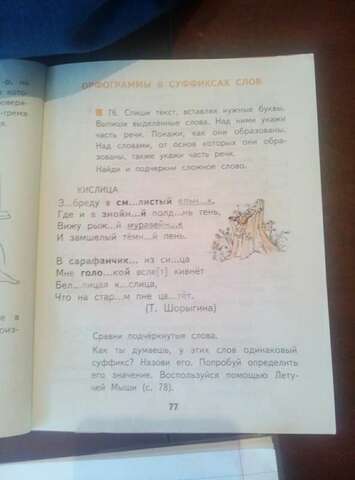 ОРФОГРАММЫ В СУФФИКСАХ СЛОВ
76. Спиши текст, вставляя нужные буквы.
Выпиши выделенные слова. Над ними укажи
часть речи. Покажи, как они образованы.
Над словами, от основ которых они обра-
зованы, также укажи часть речи.
Найди и подчеркни сложное слово.
КИСЛИЦА
З...бреду в см...листый ельн...к,
Где и в знойн...й полд...нь тень,
Вижу рыж...й муравейн...к
И замшелый тёмн...й пень.
В сарафанчик... из си...ца
Мне голо...кой вслe[т] кивнёт
Бел...лицая к...слица,
Что на стар...м пне цв...тёт.
(Т. Шорыгина)
Сравни подчёркнутые слова.
Как ты думаешь, у этих слов одинаковый
суффикс? Назови его. Попробуй определить
его значение. Воспользуйся помощью Лету-
чей Мыши (с. 78).
77